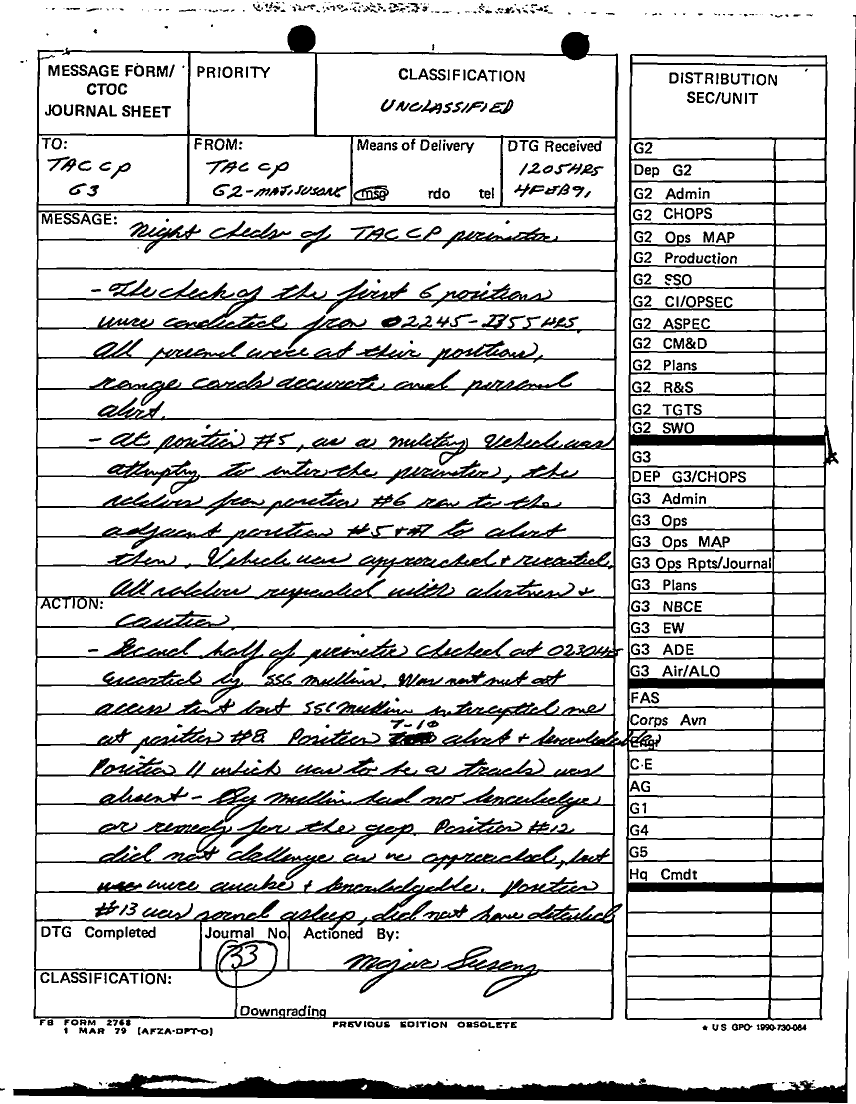 MESSAGE FORM/
CTOC
JOURNAL SHEET
PRIORITY
CLASSIFICATION
UNCLASSIFIED
TO:
TAC CP
G3
FROM:
TAC CP
G2-MAJ. SUSONG
Means of Delivery
msg rdo tel
DTG Received
1205HRS
4FEB91
MESSAGE:
Night checks of TAC CP perimeter
- The check of the first 6 positions
were conducted from 02245-2355 HRS.
All personal were at their positions,
range cards accurate and personal
alert.
- At position #5, as a military vehicle was
attempting to enter the perimeter, the
soldiers from position #6 ran to the
adjacent position #5 to alert
them. Vehicle was approached +
All soldiers responded with alertness +
ACTION:
caution.
- Second half of perimeter checked at
escorted by SSG Mullin. Was not met at
access tent but SSG Mullin intercepted me
at position #8. Position 7-10 alert + knowledgeable
Position 11 which was to be a tracks was
absent - Mullin had no knowledge
or remedy for the gap. Position #12
did not challenge as we approached, but
were awake + knowledgable. Position
#13 was sound asleep, did not have detailed
DTG Completed
Journal No.
33
Actioned By:
Major Susong
CLASSIFICATION:
Downgrading
FB FORM 2768
1 MAR 79 [AFZA-DPT-O]
PREVIOUS EDITION OBSOLETE
★ US GPO: 1990-730-084
DISTRIBUTION
SEC/UNIT
G2
Dep G2
G2 Admin
G2 CHOPS
G2 Ops MAP
G2 Production
G2 SSO
G2 CI/OPSEC
G2 ASPEC
G2 CM&D
G2 Plans
G2 R&S
G2 TGTS
G2 SWO
G3
DEP G3/CHOPS
G3 Admin
G3 Ops
G3 Ops MAP
G3 Ops Rpts/Journal
G3 Plans
G3 NBCE
G3 EW
G3 ADE
G3 Air/ALO
FAS
Corps Avn
Engr
C-E
AG
G1
G4
G5
Hq Cmdt